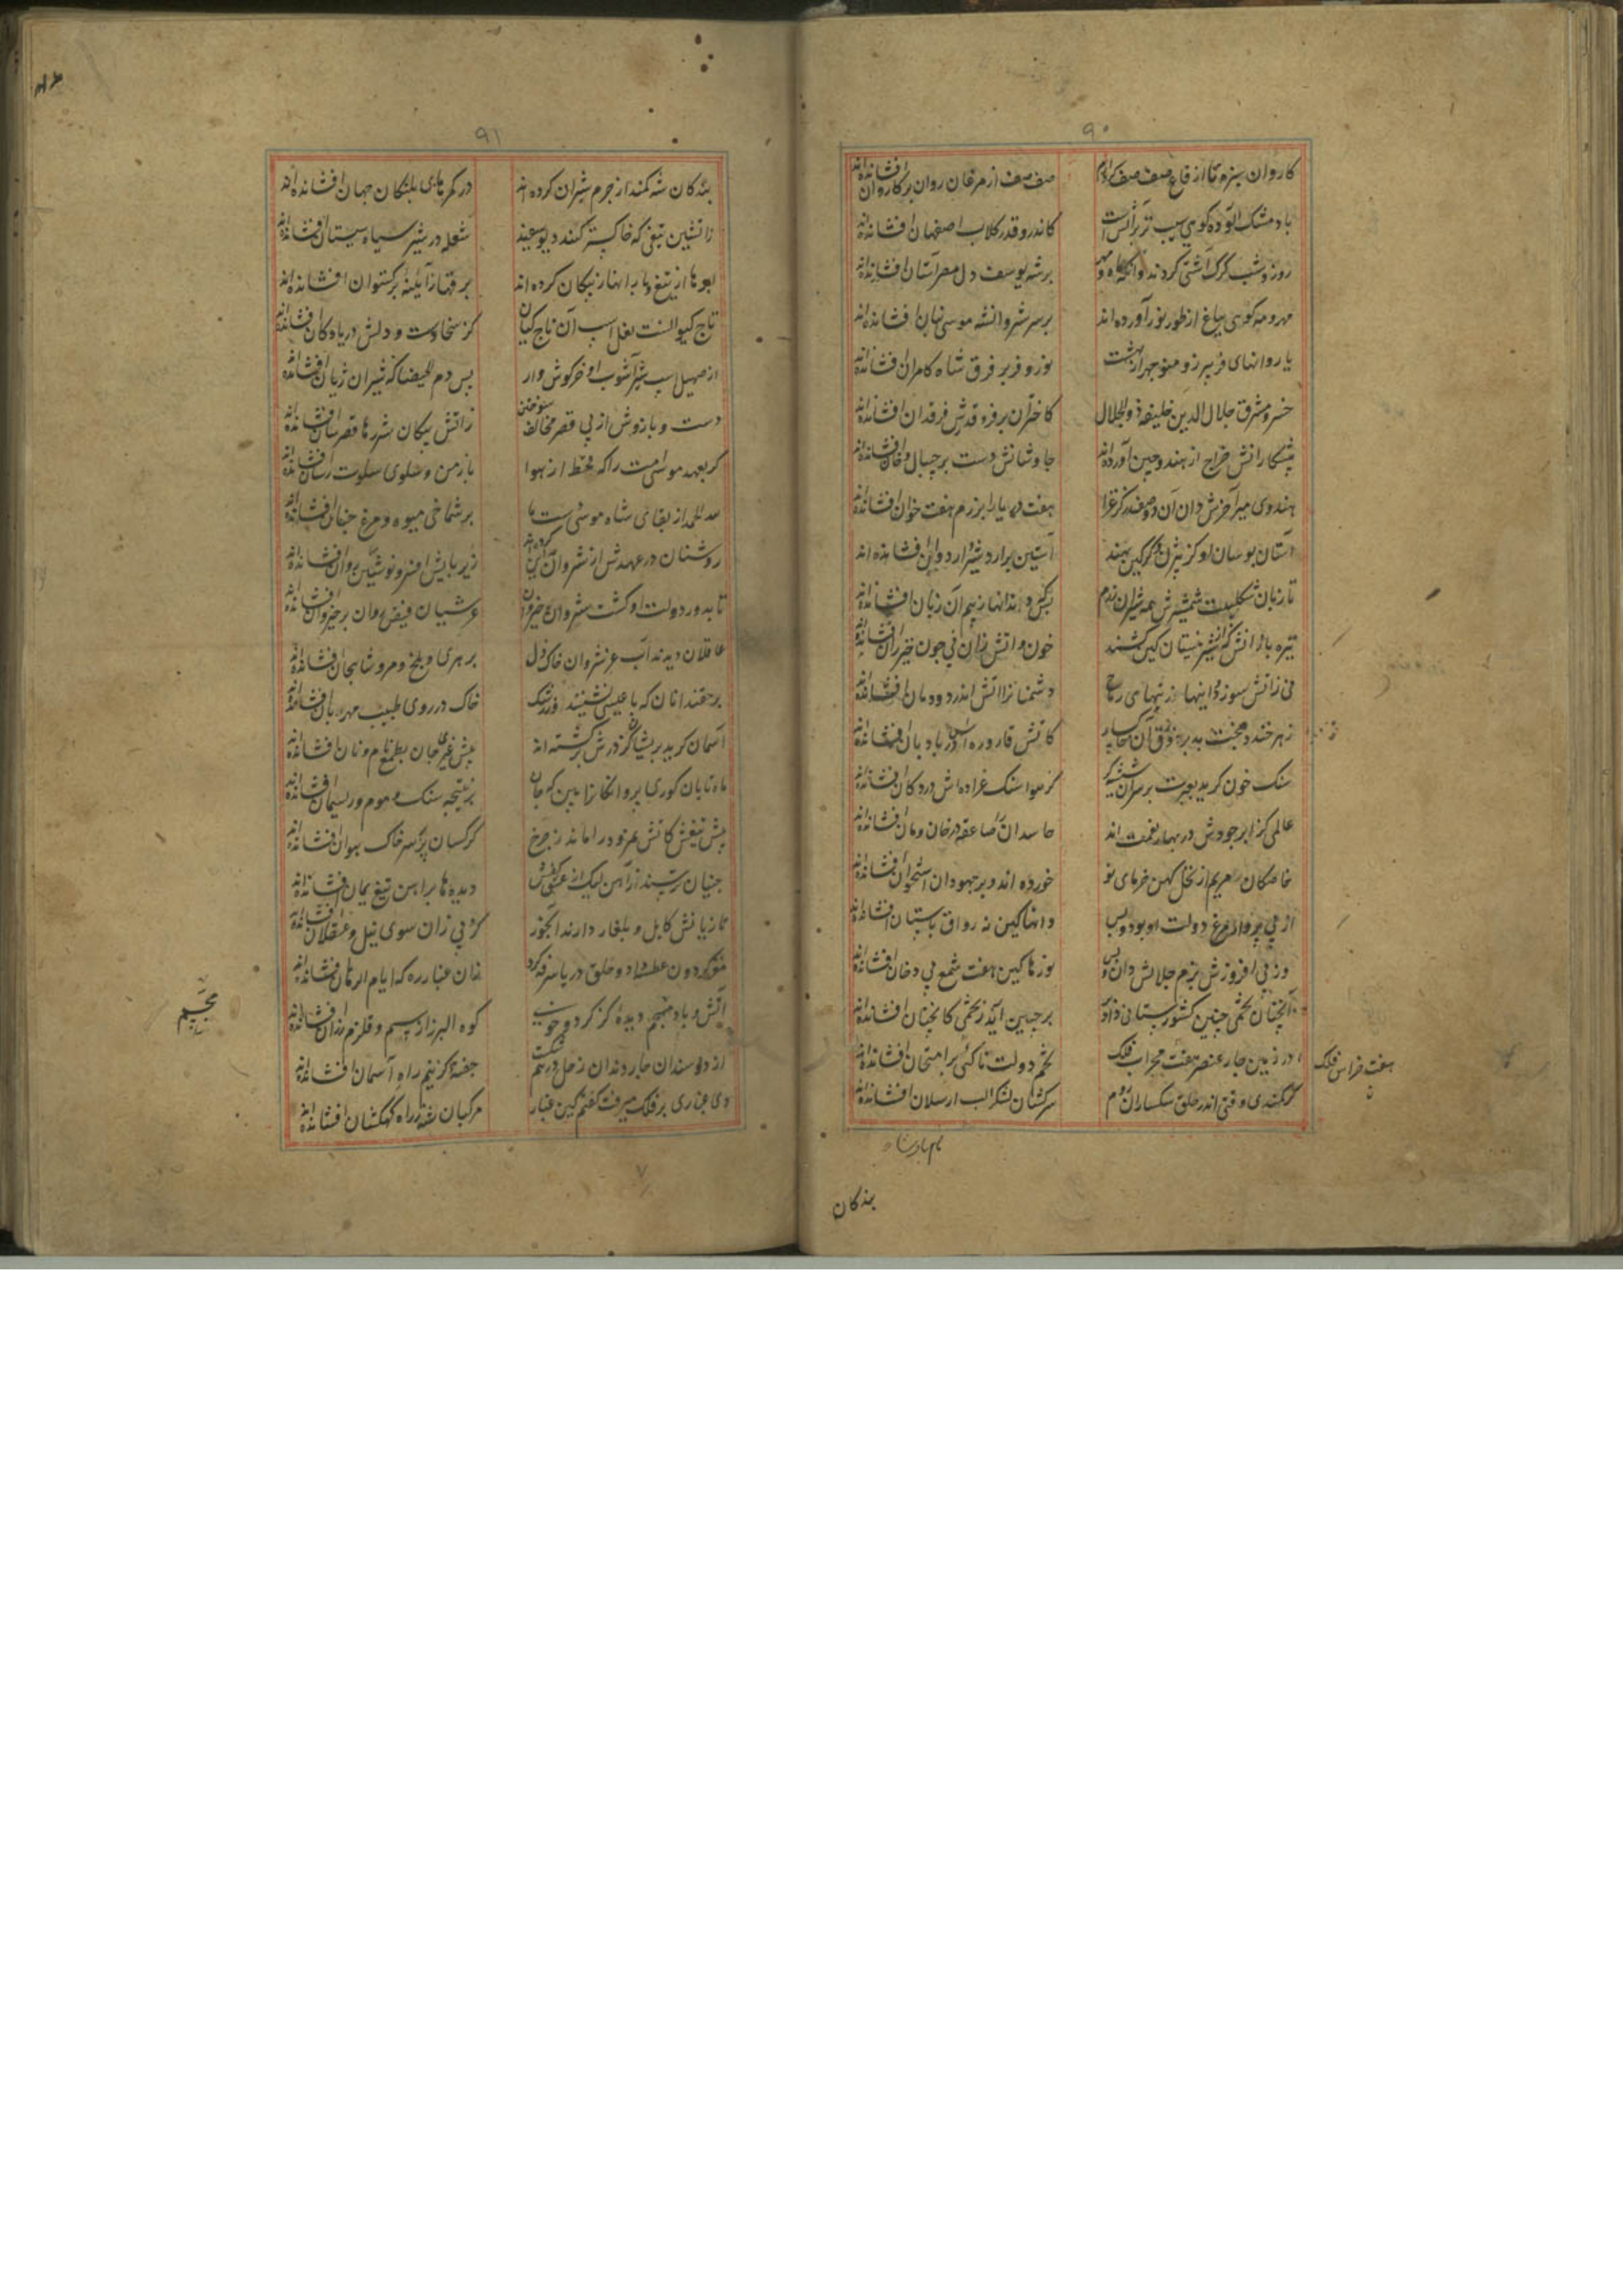 ۹۰
کاروان سبزه تا از قاع صفصف کرد ارم صف صف از مرغان روان بر کاروان افشانده‌اند
باد مشک آلوده گویی سیب تر بر آتش است کاندرو قدری گلاب اصفهان افشانده‌اند
روز و شب گرگ آشتی کردند و اینک ماه و مهر بر شه یوسف دل مصر آستان افشانده‌اند
مهر و مه گویی بباغ از طور نور آورده‌اند بر سر شروانشه موسی بنان افشانده‌اند
یا روانهای فریبرز و منوچهر از بهشت نور و فر بر فرق شاه کامران افشانده‌اند
خسرو مشرق جلال الدین خلیفه ذوالجلال کاختران بر فر و قدرش فرقدان افشانده‌اند
پیشکارانش خراج از هند و چین آورده‌اند چاوشانش دست بر چیپال و خان افشانده‌اند
هندوی میر آخرش دان آن دو صفدر کز غزا هفت دریا را برزم هفت خوان افشانده‌اند
آستان بوسان او کز بیژن و گرگین بهند آستین بر اردشیر و اردوان افشانده‌اند
تا زبان شکلیست شمشیرش همه شیران رزم بس که دندانها ز بیم آن زبان افشانده‌اند
نیزه بازانش کز شیر نیستان کین کشند خون و آتش زان نی چون خیزران افشانده‌اند
نی ز آتش سوزد و اینها ز نیهای رماح دشمنان را آتش اندر دودمان افشانده‌اند
زهر خندد بخت بد بر
کاتش قاروره در بادبان افشانده‌اند
سنگ خون گرید بعبرت بر سر آن شیشه گر کز هوا سنگ عراده‌اش در دکان افشانده‌اند
عالمی کز ابر جودش در بهار نعمت‌اند حاسدان را صاعقه در خان و مان افشانده‌اند
خاصگان مریم از نخل کهن خرمای نو خورده‌اند و بر جهودان استخوان افشانده‌اند
از پی پرواز مرغ دولت او بود و بس دانها کین نه رواق باستان افشانده‌اند
وز پی افروزش بزم جلالش دان و بس نورها کین هفت شمع بی دخان افشانده‌اند
آنچنان تخمی چنین کشورستانی داد بر چنین آید ز تخمی کانچنان افشانده‌اند
در زمین چار عنصر هفت حراث فلک تخم دولت تا کی بر امتحان افشانده‌اند
هفت حراس فلک
گرگ گندی وقتی اندر حلق سگساران روم سرکشان لشکر الب ارسلان افشانده‌اند
نام پادشاه
بندگان
۹۱
بندگان شه کمند از چرم شیران کرده‌اند در کمرهای پلنگان جهان افشانده‌اند
زآتشین تیغی که خاکستر کند دیو سفید شعله در شیر سیاه سیستان افشانده‌اند
ابرها از تیغ و بارانها ز پیکان کرده‌اند برقها ز آیینه برگستوان افشانده‌اند
تاج کیوانست نعل اسب آن تاج کیان کز سخاوت دست و دلش دریا و کان افشانده‌اند
از صهیل اسب شیر آشوب او خرگوش وار بس دم الحیضا که شیران ژیان افشانده‌اند
دست و بازوش از پی قصر مخالف سوختن زآتش پیکان شررها قصرسان افشانده‌اند
گر بعهد موسی امت را که قحط از هوا باز من و سلوی سلوت رسان افشانده‌اند
لله الحمد از بقای شاه موسی دست ما بر شماخی میوه و مرغ جنان افشانده‌اند
روشنان در عهدش از شروان مدائن کرده‌اند زیر پایش افسر نوشین روان افشانده‌اند
تا بدور دولت او گشت شروان خیروان عرشیان فیض روان بر خیروان افشانده‌اند
عاقلان دیدند آب عز شروان خاک ذل بر هری و بلخ و مرو شاهجان افشانده‌اند
بر حقند آنان که با عیسی نشستند ار ز رشک خاک در روی طبیب مهربان افشانده‌اند
آسمان گرید بریشان کز درش برگشته‌اند پیش غیری جان بطمع نام و نان افشانده‌اند
ماه تابان کوری پروانگان را بین که جان بر نتیجه سنگ و موم و ریسمان افشانده‌اند
پیش تیغش کاتش نمرود را ماند ز چرخ کرکسان پر بر سر خاک هوان افشانده‌اند
جنیان ترسند از آهن لیک از عشق کفش دیده‌ها بر آهن تیغ یمان افشانده‌اند
تازیانش کابل و بلغار دارند آبخور گرد پی زان سوی نیل و عسقلان افشانده‌اند
مغز گردون عطسه داد و حلق دریا سرفه کرد زان غبار ره که ایام الرهان افشانده‌اند
آتش و باد مجسم دیده کز گرد و خوی کوه البرز از سم و قلزم ز ران افشانده‌اند
مجسم
از دو سندان چار دندان زحل درهم شکست جفته کز نیم راه آسمان افشانده‌اند
دی غباری بر فلک میرفت گفتم کین غبار مرکبان شه ز راه کهکشان افشانده‌اند